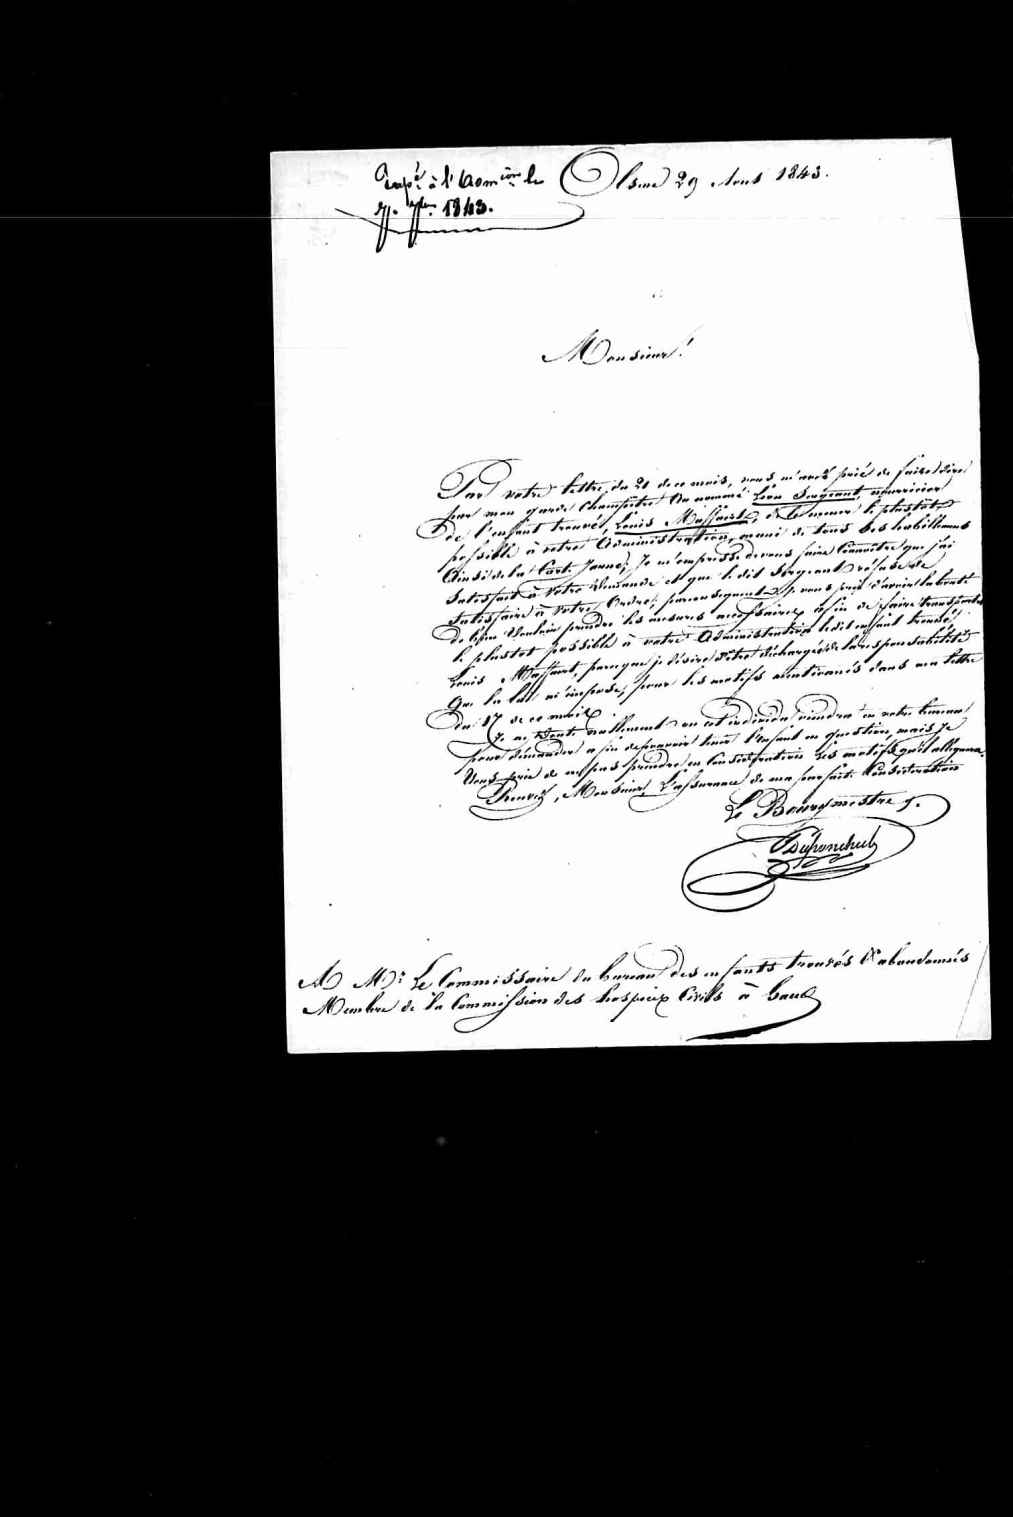 à l'adm.ion le Olsene 29 Aout 1843.
7bre 1843.
Monsieur!
Par votre lettre, du 21 de ce mois, vous m'avez prié de faire dire
par mon garde Champêtre Au nommé Léon Sergeant, nourricier
de l'enfant trouvé, Louis Maffaert, de le mener le plustôt
possible à votre Administration, muni de tous ses habillemens
Ainsi de la Carte Jaune; Je m'empresse de vous faire Connaître que j'ai
Satisfait à Votre demande et que le dit Sergeant réfuse de
Satisfaire à Votre Ordre, par consequent je vous prie d'avoir la bonté
de bien Vouloir prendre les mesures necessaires afin de faire transporter
le plustot possible à votre Administration ledit enfant trouvé,
Louis Maffaert, parceque je désire d'être déchargé de la responsabilité
Que la loi m'impose, pour les motifs mentionnés dans ma lettre
du 17 de ce mois.
Je ne doute nullement ou cet individu viendra en votre bureau
pour démander afin de pouvoir tenir l'enfant en question, mais Je
Vous prie de ne pas prendre en Considération les motifs qu'il alléguera.
Recevez, Monsieur, L'assurance de ma parfaite Considération
Le Bourgmestre,
A Mr. Le Commissaire du bureau des enfants trouvés & abandonnés
Membre de la Commission des hospices Civils à Gand